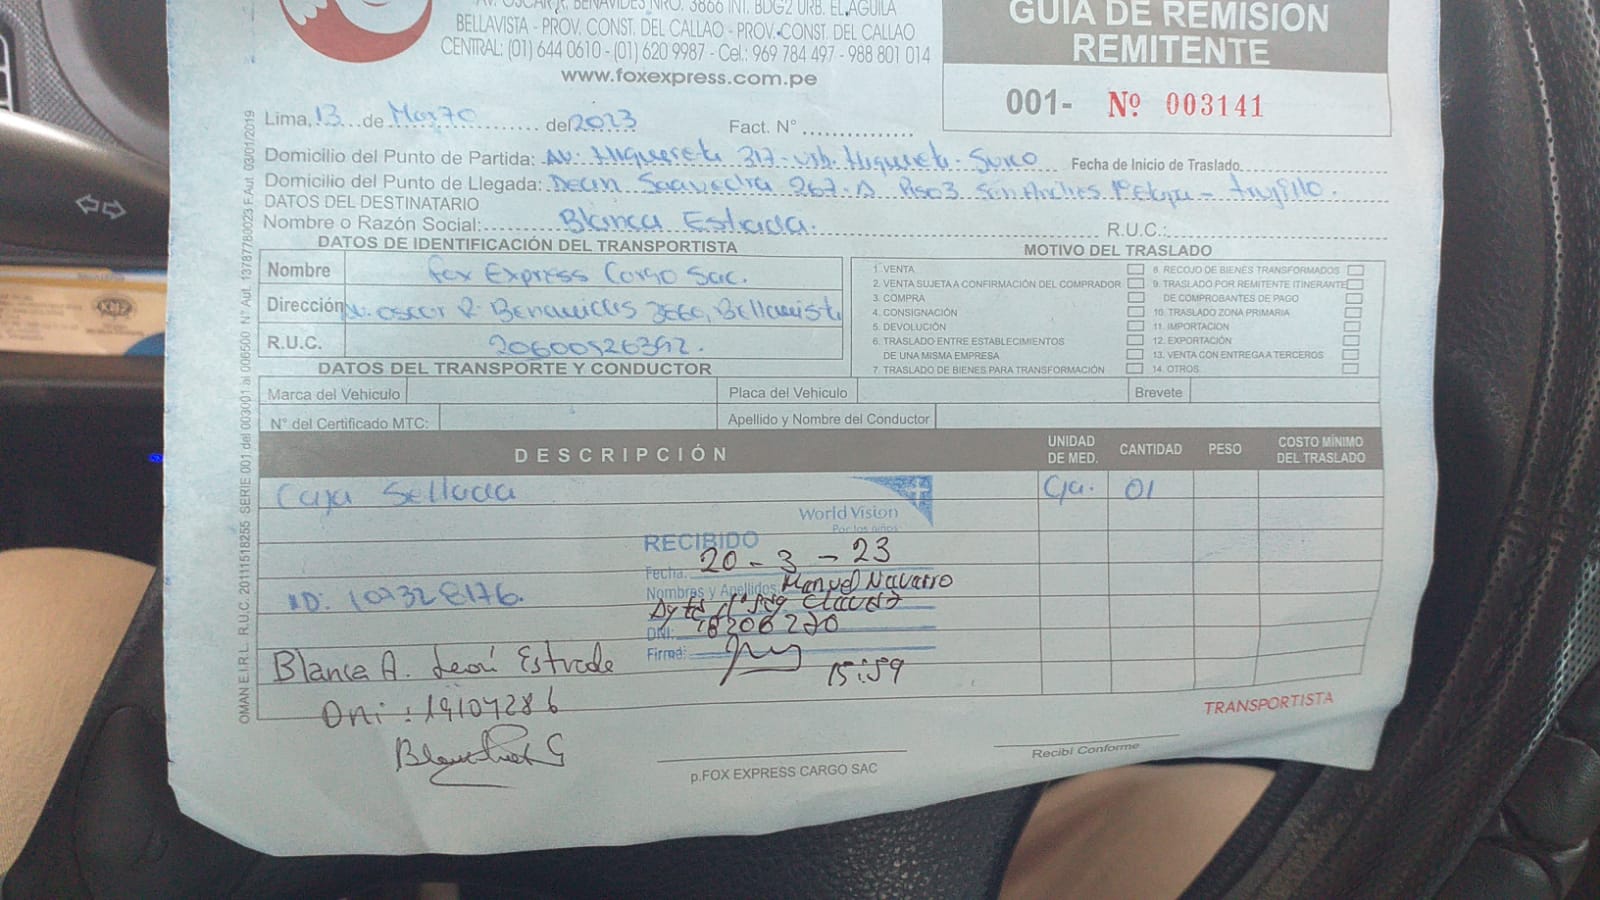 AV. OSCAR R. BENAVIDES NRO. 3866 INT. BDG2 URB. EL AGUILA
BELLAVISTA - PROV. CONST. DEL CALLAO - PROV. CONST. DEL CALLAO
CENTRAL: (01) 644 0610 - (01) 620 9987 - Cel.: 969 784 497 - 988 801 014
www.foxexpress.com.pe
GUIA DE REMISIÓN
REMITENTE
001- Nº 003141
Lima, 13 de Marzo del 2023 Fact. N°
Domicilio del Punto de Partida: Av. Higuereta 317 - Urb. Higuereta - Surco Fecha de Inicio de Traslado
Domicilio del Punto de Llegada: Dean Saavedra 267-A Piso 3 San Andres 1º Etapa - Trujillo.
DATOS DEL DESTINATARIO
Nombre o Razón Social: Blanca Estrada. R.U.C.:
DATOS DE IDENTIFICACIÓN DEL TRANSPORTISTA
Nombre Fox Express Cargo Sac.
Dirección Av. Oscar R. Benavides 3866, Bellavista
R.U.C. 20600526392.
MOTIVO DEL TRASLADO
1. VENTA
2. VENTA SUJETA A CONFIRMACIÓN DEL COMPRADOR
3. COMPRA
4. CONSIGNACIÓN
5. DEVOLUCIÓN
6. TRASLADO ENTRE ESTABLECIMIENTOS
DE UNA MISMA EMPRESA
7. TRASLADO DE BIENES PARA TRANSFORMACIÓN
8. RECOJO DE BIENES TRANSFORMADOS
9. TRASLADO POR REMITENTE ITINERANTE
DE COMPROBANTES DE PAGO
10. TRASLADO ZONA PRIMARIA
11. IMPORTACIÓN
12. EXPORTACIÓN
13. VENTA CON ENTREGA A TERCEROS
14. OTROS
DATOS DEL TRANSPORTE Y CONDUCTOR
Marca del Vehiculo Placa del Vehiculo Brevete
N° del Certificado MTC: Apellido y Nombre del Conductor
DESCRIPCIÓN UNIDAD DE MED. CANTIDAD PESO COSTO MÍNIMO DEL TRASLADO
Caja Sellada Cja. 01
World Vision
Por los niños
RECIBIDO
Fecha: 20 - 3 - 23
Nombres y Apellidos Manuel Navarro
DNI: 18206270
Firma: 15:59
ID: 107328176.
Blanca A. León Estrada
Dni: 19104286
p.FOX EXPRESS CARGO SAC
Recibí Conforme
TRANSPORTISTA
OMAN E.I.R.L. R.U.C. 20111518255 SERIE 001 del 003001 al 006500 N° Aut. 13787789023 F.Aut. 03/01/2019